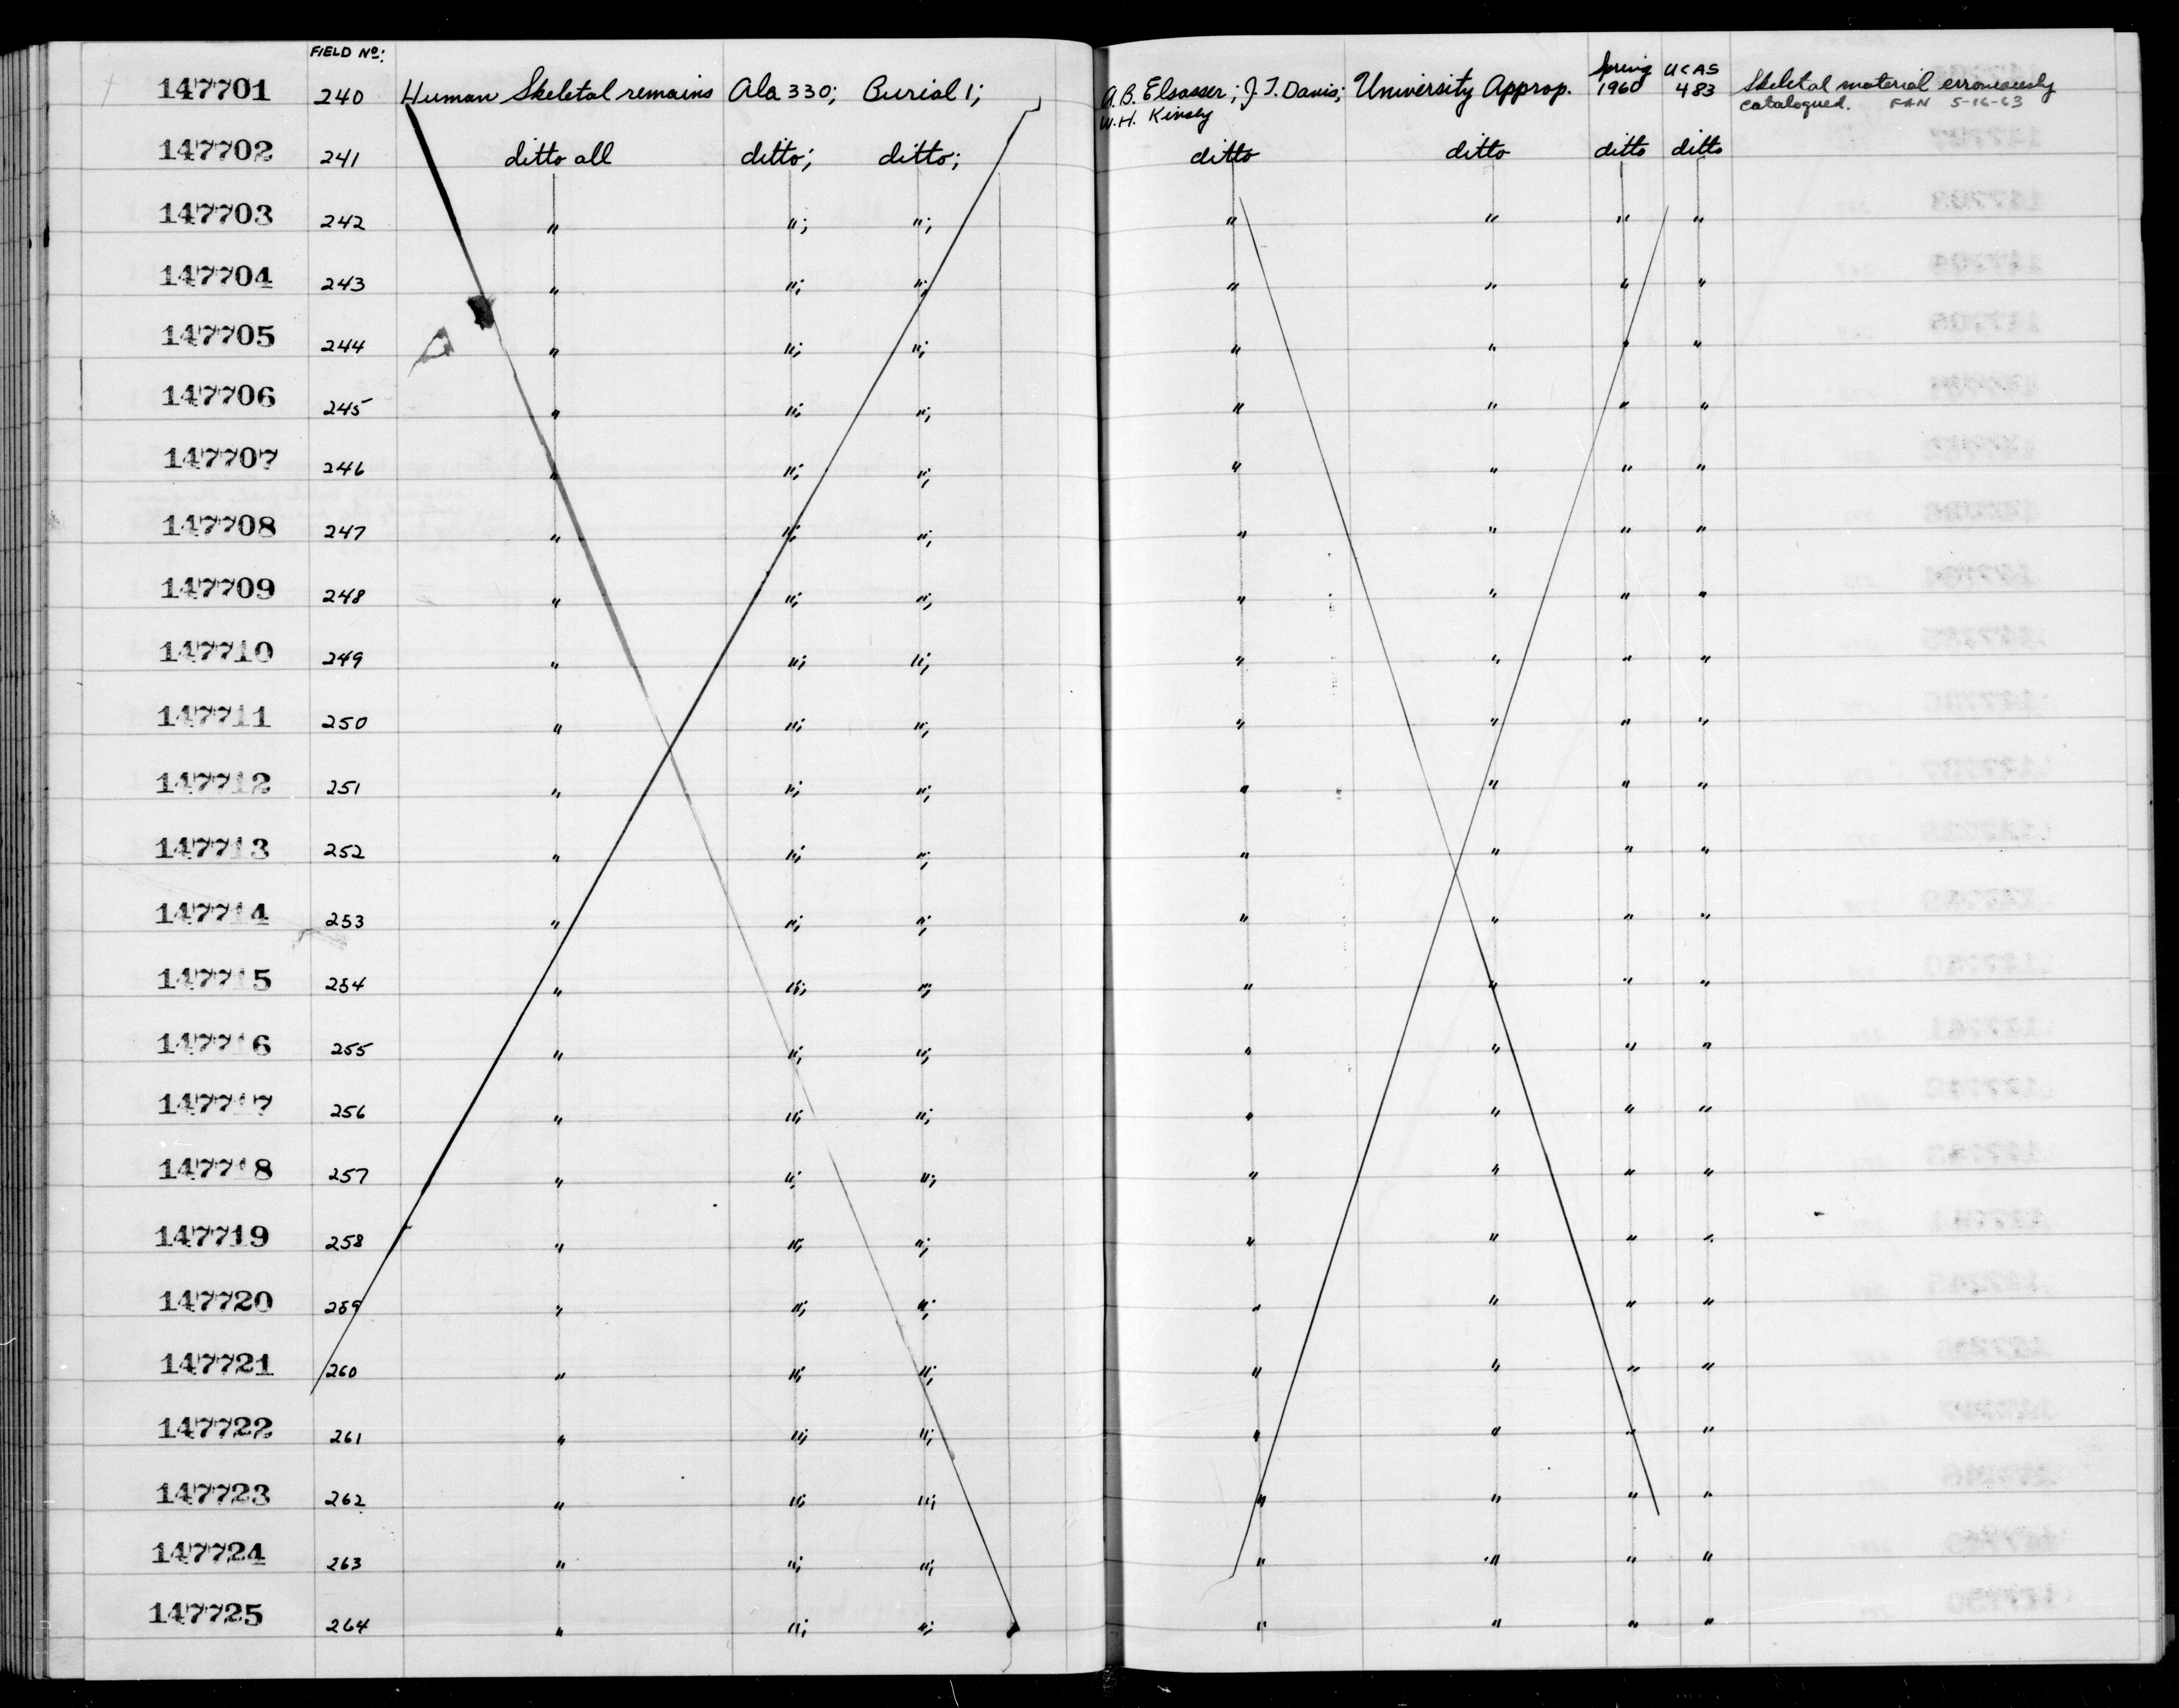 FIELD Nº:
147701 240 Human Skeletal remains Ala 330; Burial 1; A.B. Elsasser; J.T. Davis; W.H. Kinsey University Approp. Spring 1960 UCAS 483 Skeletal material erroneously catalogued. FAN 5-16-63
147702 241 ditto all ditto; ditto; ditto ditto ditto ditto
147703 242 " "; "; " " " "
147704 243 " "; "; " " " "
147705 244 " "; "; " " " "
147706 245 " "; "; " " " "
147707 246 " "; "; " " " "
147708 247 " "; "; " " " "
147709 248 " "; "; " " " "
147710 249 " "; "; " " " "
147711 250 " "; "; " " " "
147712 251 " "; "; " " " "
147713 252 " "; "; " " " "
147714 253 " "; "; " " " "
147715 254 " "; "; " " " "
147716 255 " "; "; " " " "
147717 256 " "; "; " " " "
147718 257 " "; "; " " " "
147719 258 " "; "; " " " "
147720 259 " "; "; " " " "
147721 260 " "; "; " " " "
147722 261 " "; "; " " " "
147723 262 " "; "; " " " "
147724 263 " "; "; " " " "
147725 264 " "; "; " " " "